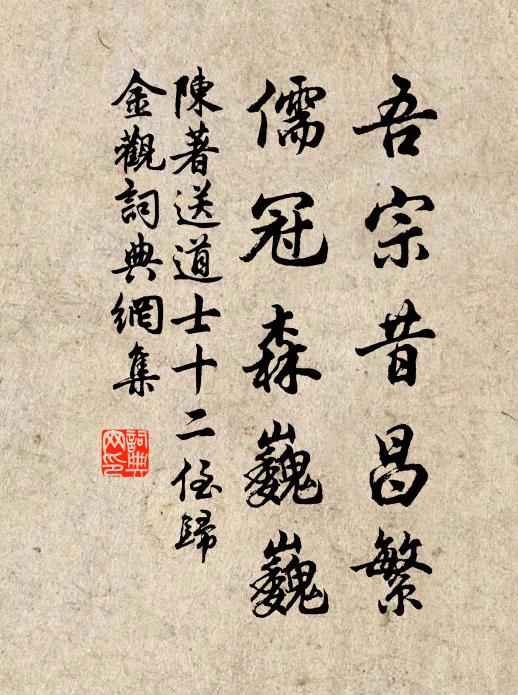 吾宗昔昌繁
儒冠森巍巍
陳著送道士十二侄歸
金觀詞典網集
詞典网印